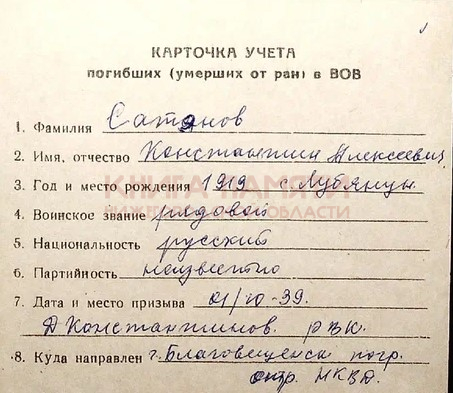 КАРТОЧКА УЧЕТА
погибших (умерших от ран) в ВОВ
1. Фамилия Сатянов
2. Имя, отчество Константин Алексеевич
3. Год и место рождения 1919 с. Лубянцы
КНИГА ПАМЯТИ
4. Воинское звание рядовой
НИЖЕГОРОДСКОЙ ОБЛАСТИ
5. Национальность русский
6. Партийность неизвестно
7. Дата и место призыва 01/10-39.
Д Константинов. РВК.
8. Куда направлен г. Благовещенск погр.
отр. НКВД.